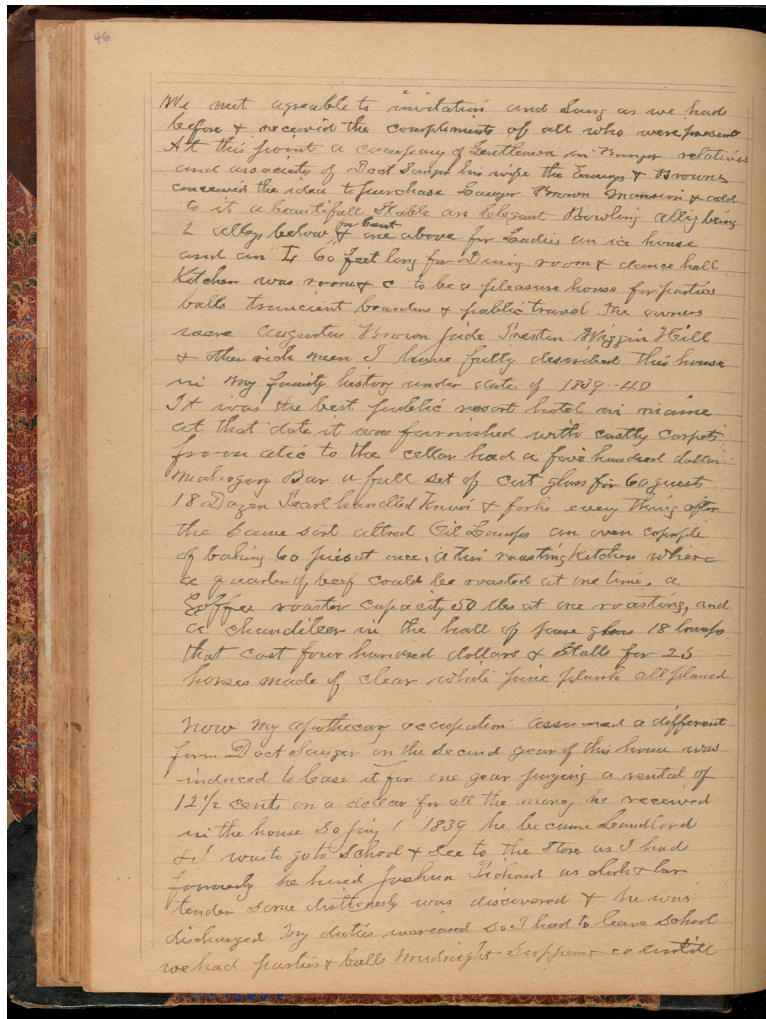 46
We met agreable to invitation and Sung as we had
before & receivid the compliments of all who were present
At this point a company of Gentlemen in Bangor relatives
and associets of Doct Sanger his wife the Emerys & Browns
conceived the idea to purchase Sawyer Brown Mansion & add
to it a beautifull Stable an Elegant Bowling alley being
2 alleys below for Gent & one above for Ladies an ice house
and an L 60 feet long for Dining room & dance hall
Kitchen was room & c to be a pleasure house for parties
balls trancient boarders & public travel The owners
were Augustus Brown Preston Wiggin Hill
& other rich men I have fully described this house
in my family history under date of 1839-40
It was the best public resort hotel in maine
at that date it was furnished with costly carpets
from atic to the cellar had a five hundred dollar
Mahogany Bar a full set of cut glass for 60 guests
18 Dozen Pearl handled Knives & forks every thing after
the same sort Oil Lamps an oven
of baking 60 pies at once, a tin roasting kitchen where
a quarter of beef could be roasted at one time, a
Coffee roaster capacity 50 lbs at one roasting, and
a chandileer in the hall of glass 18 lamps
that cost four hundred dollars & Stalls for 25
horses made of clear white pine plank all planed
Now My apothecary occupation assumed a different
form Doct Sanger on the second year of this house was
induced to lease it for one year paying a rental of
12 1/2 cents on a dollar for all the money he received
in the house 1839 he became Landlord
& I was to go to School & See to the Store as I had
formerly he hired Joshua as clerk & bar
tender some was discovered & he was
discharged My duties increased So I had to leave School
we had parties & balls Midnight Suppers